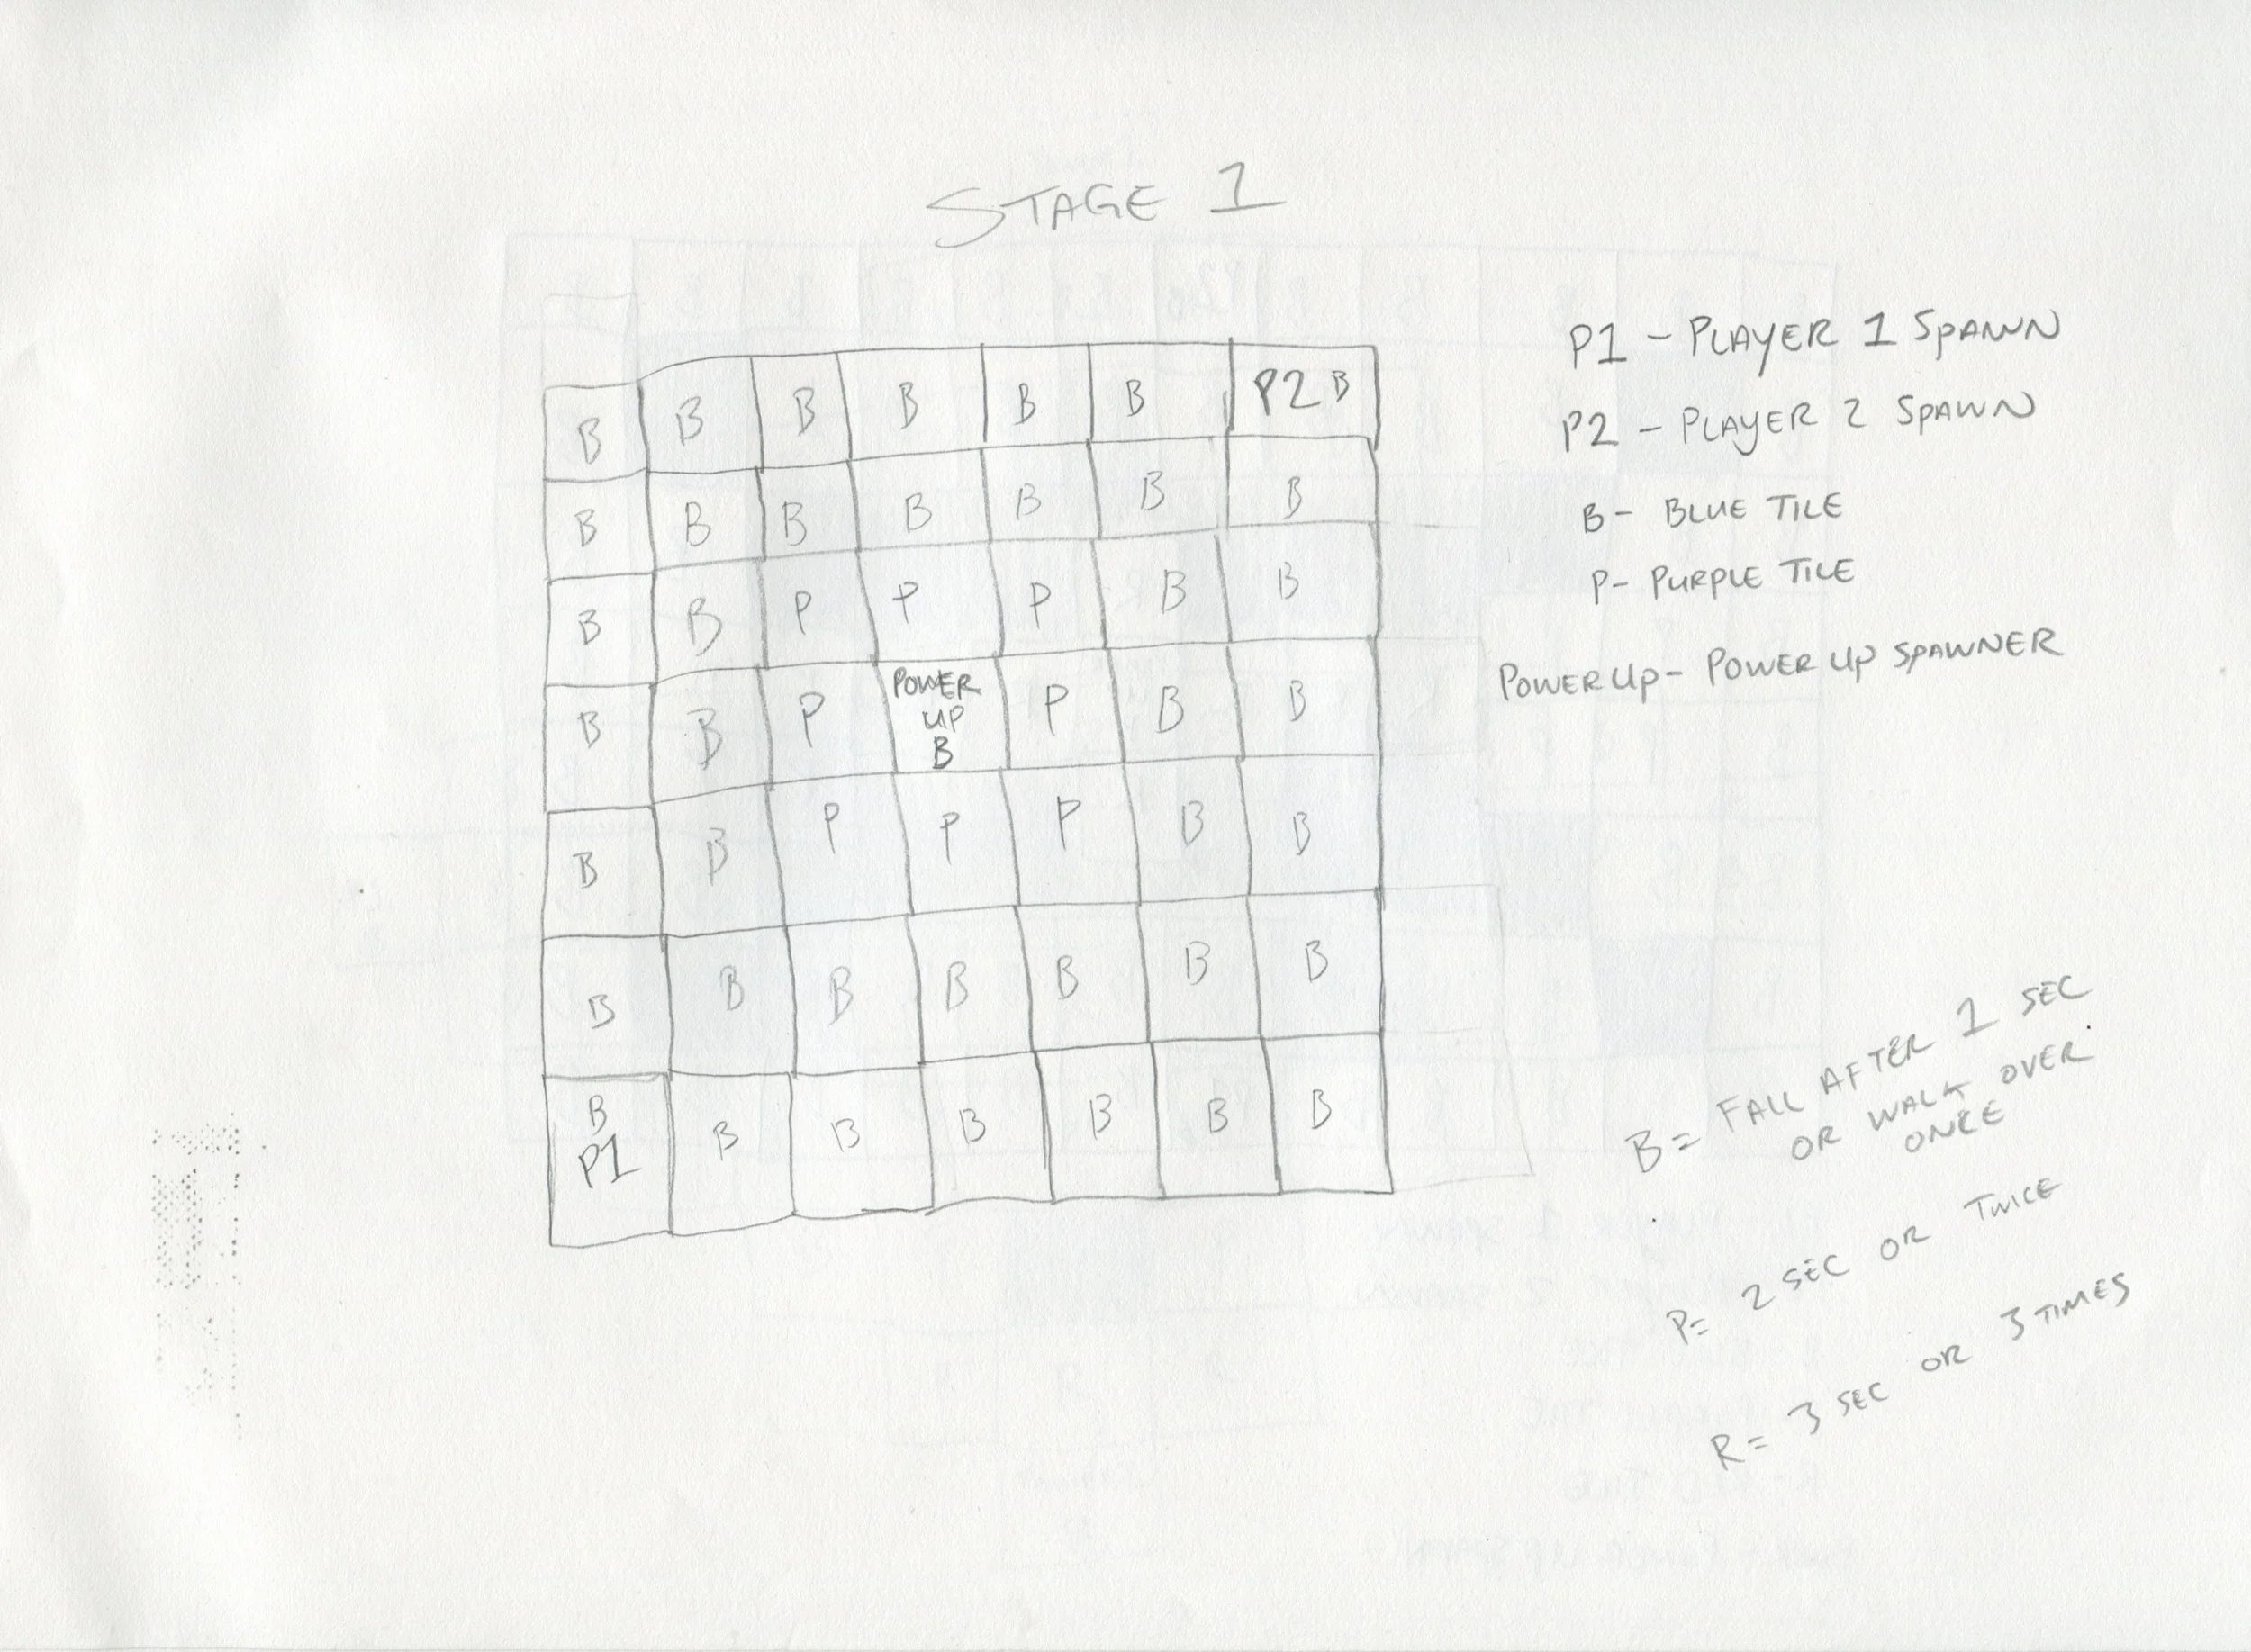 STAGE 1
B B B B B B P2 B
B B B B B B B
B B P P P B B
B B P POWER UP B P B B
B B P P P B B
B B B B B B B
B P1 B B B B B B
P1 - PLAYER 1 SPAWN
P2 - PLAYER 2 SPAWN
B - BLUE TILE
P - PURPLE TILE
POWER UP - POWER UP SPAWNER
B = FALL AFTER 1 SEC
OR WALK OVER
ONCE
P = 2 SEC OR TWICE
R = 3 SEC OR 3 TIMES